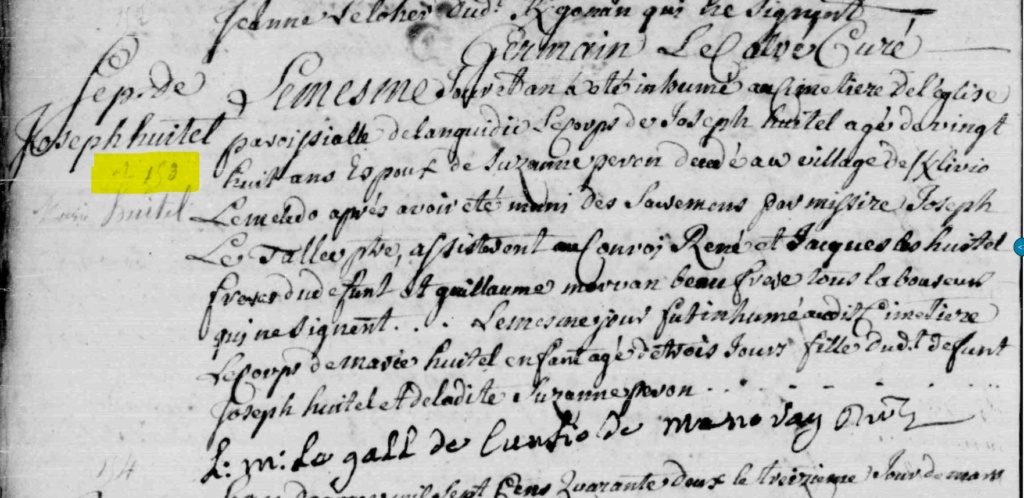 Jeanne Le loher dud.t Kgonan qui ne signent
Germain Le Calvé Curé
Sep.re de
Joseph huitel
et 153
Marie huitel
Le mesme Jour et an a eté inhumé au Cimetiere de l'eglise
paroissialle de languidic Le corps de Joseph huitel agé de vingt
huit ans Epoux de Suzanne peron decedé au village de Klivio
Lemerdo aprés avoir été muni des Sacremens par missire Joseph
Le Tallec ptre, assisterent au Convoy René et Jacques les huitel
freres du defunt Et guillaume morvan beau frere tous laboureurs
qui ne signent . . . Le mesme jour fut inhumé audit Cimetiere
Le corps de marie huitel enfant agé de trois Jours fille dud.t defunt
Joseph huitel et de ladite Suzanne peron . . . . . .
L: m: Le gall de
154
mil sept Cens Quarante deux le treizieme Jour de mars